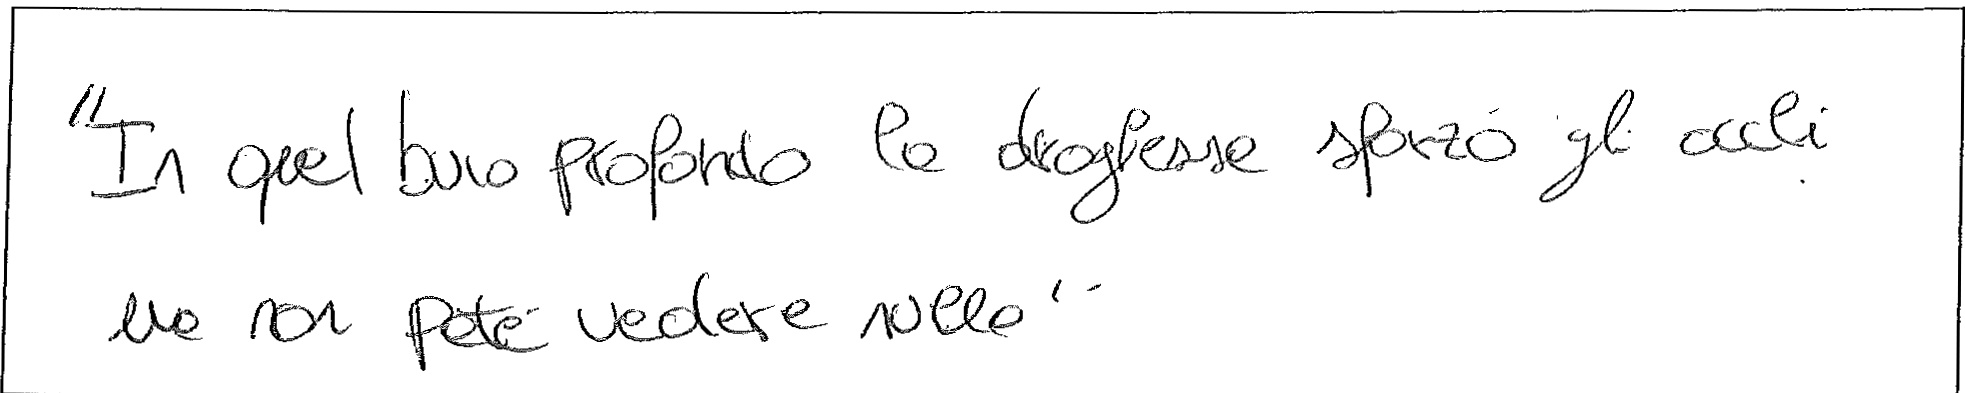 "In quel buio profondo la draghessa sforzò gli occhi
ma non poté vedere nulla"